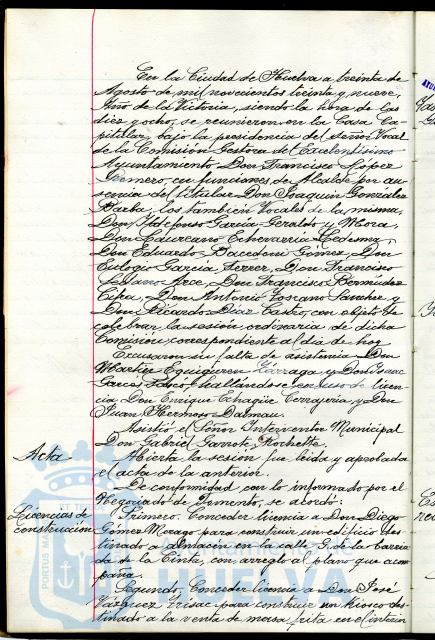 En la Ciudad de Huelva a treinta de
Agosto de mil novecientos treinta y nueve,
Año de la Victoria, siendo la hora de las
diez y ocho, se reunieron en la Casa Ca-
pitular, bajo la presidencia del Señor Vocal
de la Comisión Gestora del Excelentísimo
Ayuntamiento Don Francisco López
Gomero, en funciones de Alcalde por au-
sencia del titular Don Joaquín González
Barba, los también Vocales de la misma,
Don Ildefonso García-Geraldo y Mora,
Don Laureano Echevarría Ledesma,
Don Eduardo Macedoni Gómez, Don
Eulogio García Ferrer, Don Francisco
Llano Arce, Don Francisco Bermúdez
Cifra, Don Antonio Toscano Sánchez y
Don Ricardo Díaz Castro, con objeto de
celebrar la sesión ordinaria de dicha
Comisión, correspondiente al día de hoy
Excusaron su falta de asistencia Don
Martín Eguiguren Yárzaga y Don Isaac
Garcés hallándose en uso de licen-
cia Don Enrique Echagüe Cerrajería y Don
Juan Hermoso Dalmau.
Asistió el Señor Interventor Municipal
Don Gabriel Rochette.
Acta
Abierta la sesión fue leída y aprobada
el acta de la anterior.
De conformidad con lo informado por el
Negociado de Fomento, se acordó:
Licencias de
construcción
Primero. Conceder licencia a Don Diego
Gómez Morago para construir un edificio des-
tinado a almacén en la calle G. de la barria-
da de la Cinta, con arreglo al plano que acom-
paña.
Segundo. Conceder licencia a Don José
Vázquez para construir un kiosco des-
tinado a la venta de masa frita en el interior
HUELVA